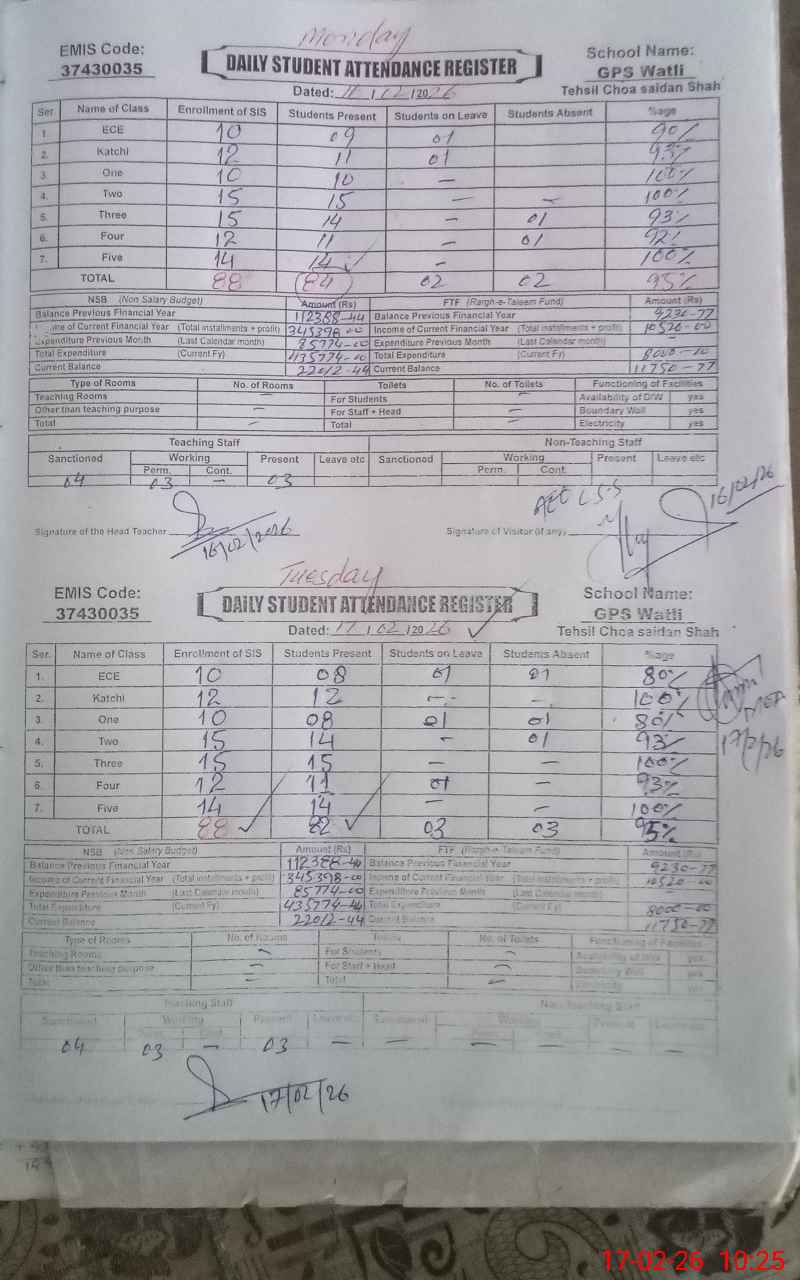 Monday
EMIS Code: 37430035
DAILY STUDENT ATTENDANCE REGISTER
School Name: GPS Watli
Tehsil Choa saidan Shah
Dated: /02/2026
Ser Name of Class Enrollment of SIS Students Present Students on Leave Students Absent %age
1. ECE 10 09 01 90%
2. Katchi 12 11 01 93%
3. One 10 10 – 100%
4. Two 15 15 – – 100%
5. Three 15 14 – 01 93%
6. Four 12 11 01 92%
7. Five 14 14 – 100%
TOTAL 88 84 02 02 95%
NSB (Non Salary Budget) Amount (Rs) FTF (Rargh-e-Taleem Fund) Amount (Rs)
Balance Previous Financial Year 112388-44 Balance Previous Financial Year 9230-77
of Current Financial Year (Total installments + profit) 345398-00 Income of Current Financial Year (Total installments + profit) 10520-00
Expenditure Previous Month (Last Calendar month) 85774-00 Expenditure Previous Month (Last Calendar month) –
Total Expenditure (Current Fy) 435774-00 Total Expenditure (Current Fy) 8000-00
Current Balance 22012-44 Current Balance 11750-77
Type of Rooms No. of Rooms Toilets No. of Toilets Functioning of Facilities
Teaching Rooms – For Students – Availability of D/W yes
Other than teaching purpose – For Staff + Head – Boundary Wall yes
Total – Total – Electricity yes
Teaching Staff Non-Teaching Staff
Sanctioned Working Present Leave etc Sanctioned Working Present Leave etc
Perm. Cont. Perm. Cont.
04 03 – 03
Signature of the Head Teacher 16/02/2026
Signature of Visitor (if any) 16/02/26
Tuesday
EMIS Code: 37430035
DAILY STUDENT ATTENDANCE REGISTER
School Name: GPS Watli
Tehsil Choa saidan Shah
Dated: 17/02/2026
Ser. Name of Class Enrollment of SIS Students Present Students on Leave Students Absent %age
1. ECE 10 08 01 01 80%
2. Katchi 12 12 – – 100%
3. One 10 08 01 01 80%
4. Two 15 14 – 01 93%
5. Three 15 15 – – 100%
6. Four 12 11 01 – 93%
7. Five 14 14 – – 100%
TOTAL 88 82 03 03 95%
17/2/26
NSB (Non Salary Budget) Amount (Rs) FTF (Rargh-e-Taleem Fund) Amount (Rs)
Balance Previous Financial Year 112388-44 Balance Previous Financial Year 9230-77
Income of Current Financial Year (Total installments + profit) 345398-00 Income of Current Financial Year (Total installments + profit) 10520-00
Expenditure Previous Month (Last Calendar month) 85774-00 Expenditure Previous Month (Last Calendar month)
Total Expenditure (Current Fy) 435774-44 Total Expenditure (Current Fy) 8000-00
Current Balance 22012-44 Current Balance 11750-77
Type of Rooms No. of Rooms Toilets No. of Toilets Functioning of Facilities
Teaching Rooms – For Students – Availability of D/W yes
Other than teaching purpose – For Staff + Head – Boundary Wall yes
Total – Total – Electricity yes
Teaching Staff Non-Teaching Staff
Sanctioned Working Present Leave etc Sanctioned Working Present Leave etc
Perm. Cont. Perm. Cont.
04 03 – 03 – – – – – –
17/02/26
17-02-26 10:25